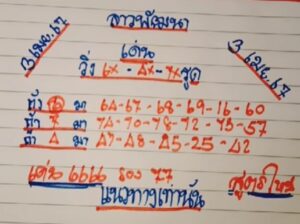 ลาวพัฒนา
3 เมย. 67
3 เมย. 67
เด่น
วิ่ง 6x - 4x - 7x รูด
ถ้า 6 มา 64-67-68-69-16-60
ถ้า 7 มา 74-70-78-72-75-57
ถ้า 4 มา 47-48-45-25-42
เด่น 6666 รอง 77
สูตรใหม่
แนวทางเท่านั้น